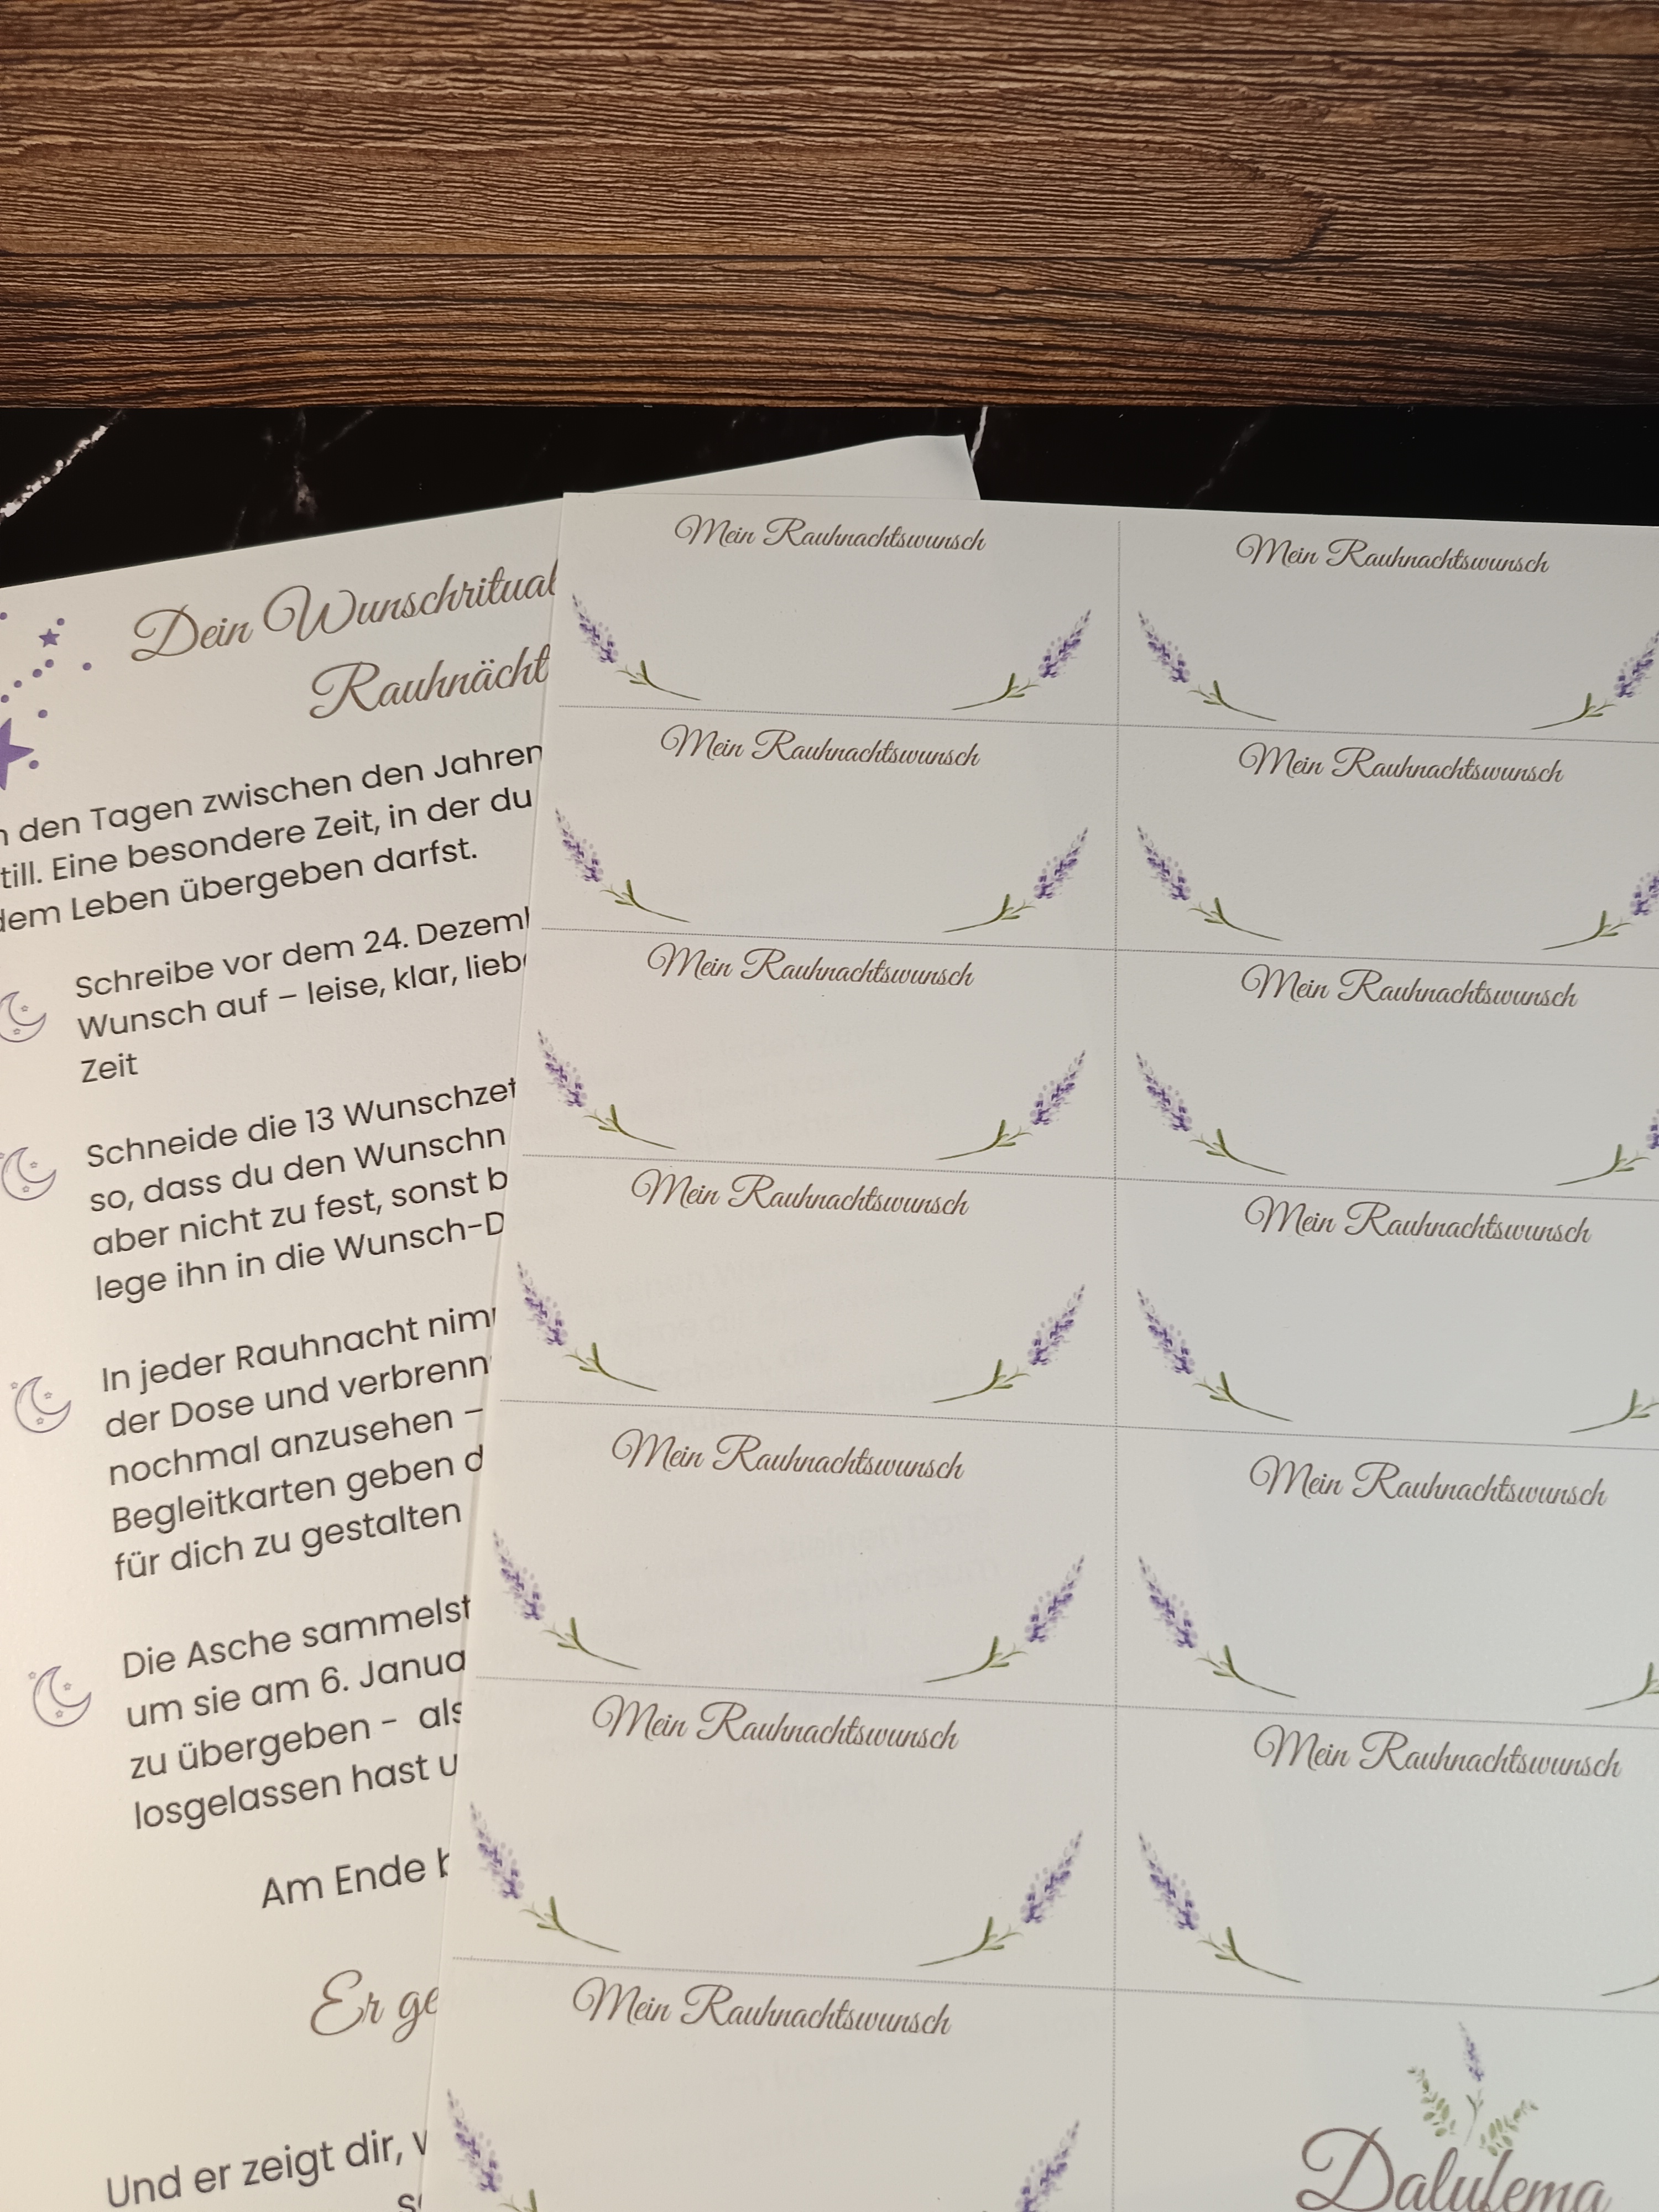 Dein Wunschritual
Rauhnächt
den Tagen zwischen den Jahren
Eine besondere Zeit, in der du
Leben übergeben darfst.
Schreibe vor dem 24. Dezem
Wunsch auf – leise, klar, lieb
Zeit
Schneide die 13 Wunschzet
so, dass du den Wunschn
aber nicht zu fest, sonst b
lege ihn in die Wunsch-D
In jeder Rauhnacht nim
der Dose und verbrenn
nochmal anzusehen –
Begleitkarten geben d
für dich zu gestalten
Die Asche sammelst
um sie am 6. Janua
zu übergeben – als
losgelassen hast u
Am Ende b
Er ge
Und er zeigt dir, w
Mein Rauhnachtswunsch
Mein Rauhnachtswunsch
Mein Rauhnachtswunsch
Mein Rauhnachtswunsch
Mein Rauhnachtswunsch
Mein Rauhnachtswunsch
Mein Rauhnachtswunsch
Mein Rauhnachtswunsch
Mein Rauhnachtswunsch
Mein Rauhnachtswunsch
Mein Rauhnachtswunsch
Mein Rauhnachtswunsch
Mein Rauhnachtswunsch
Dalulema